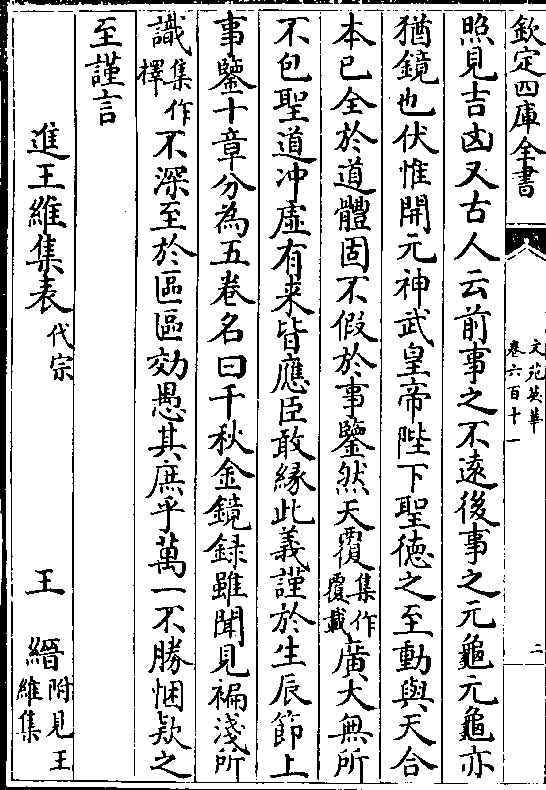 欽定四庫全書
文苑英華
卷六百十一
二
照見吉凶又古人云前事之不遠後事之元龜元龜亦
猶鏡也伏惟開元神武皇帝陛下聖徳之至動與天合
本已全於道體固不假於事鑒然天覆集作覆載廣大無所
不包聖道冲虚有来皆應臣敢縁此義謹於生辰節上
事鑒十章分為五卷名曰千秋金鏡録雖聞見褊淺所
識集作擇不深至於區區効愚其庶乎萬一不勝悃欵之
至謹言
進王維集表代宗 王縉附見王維集